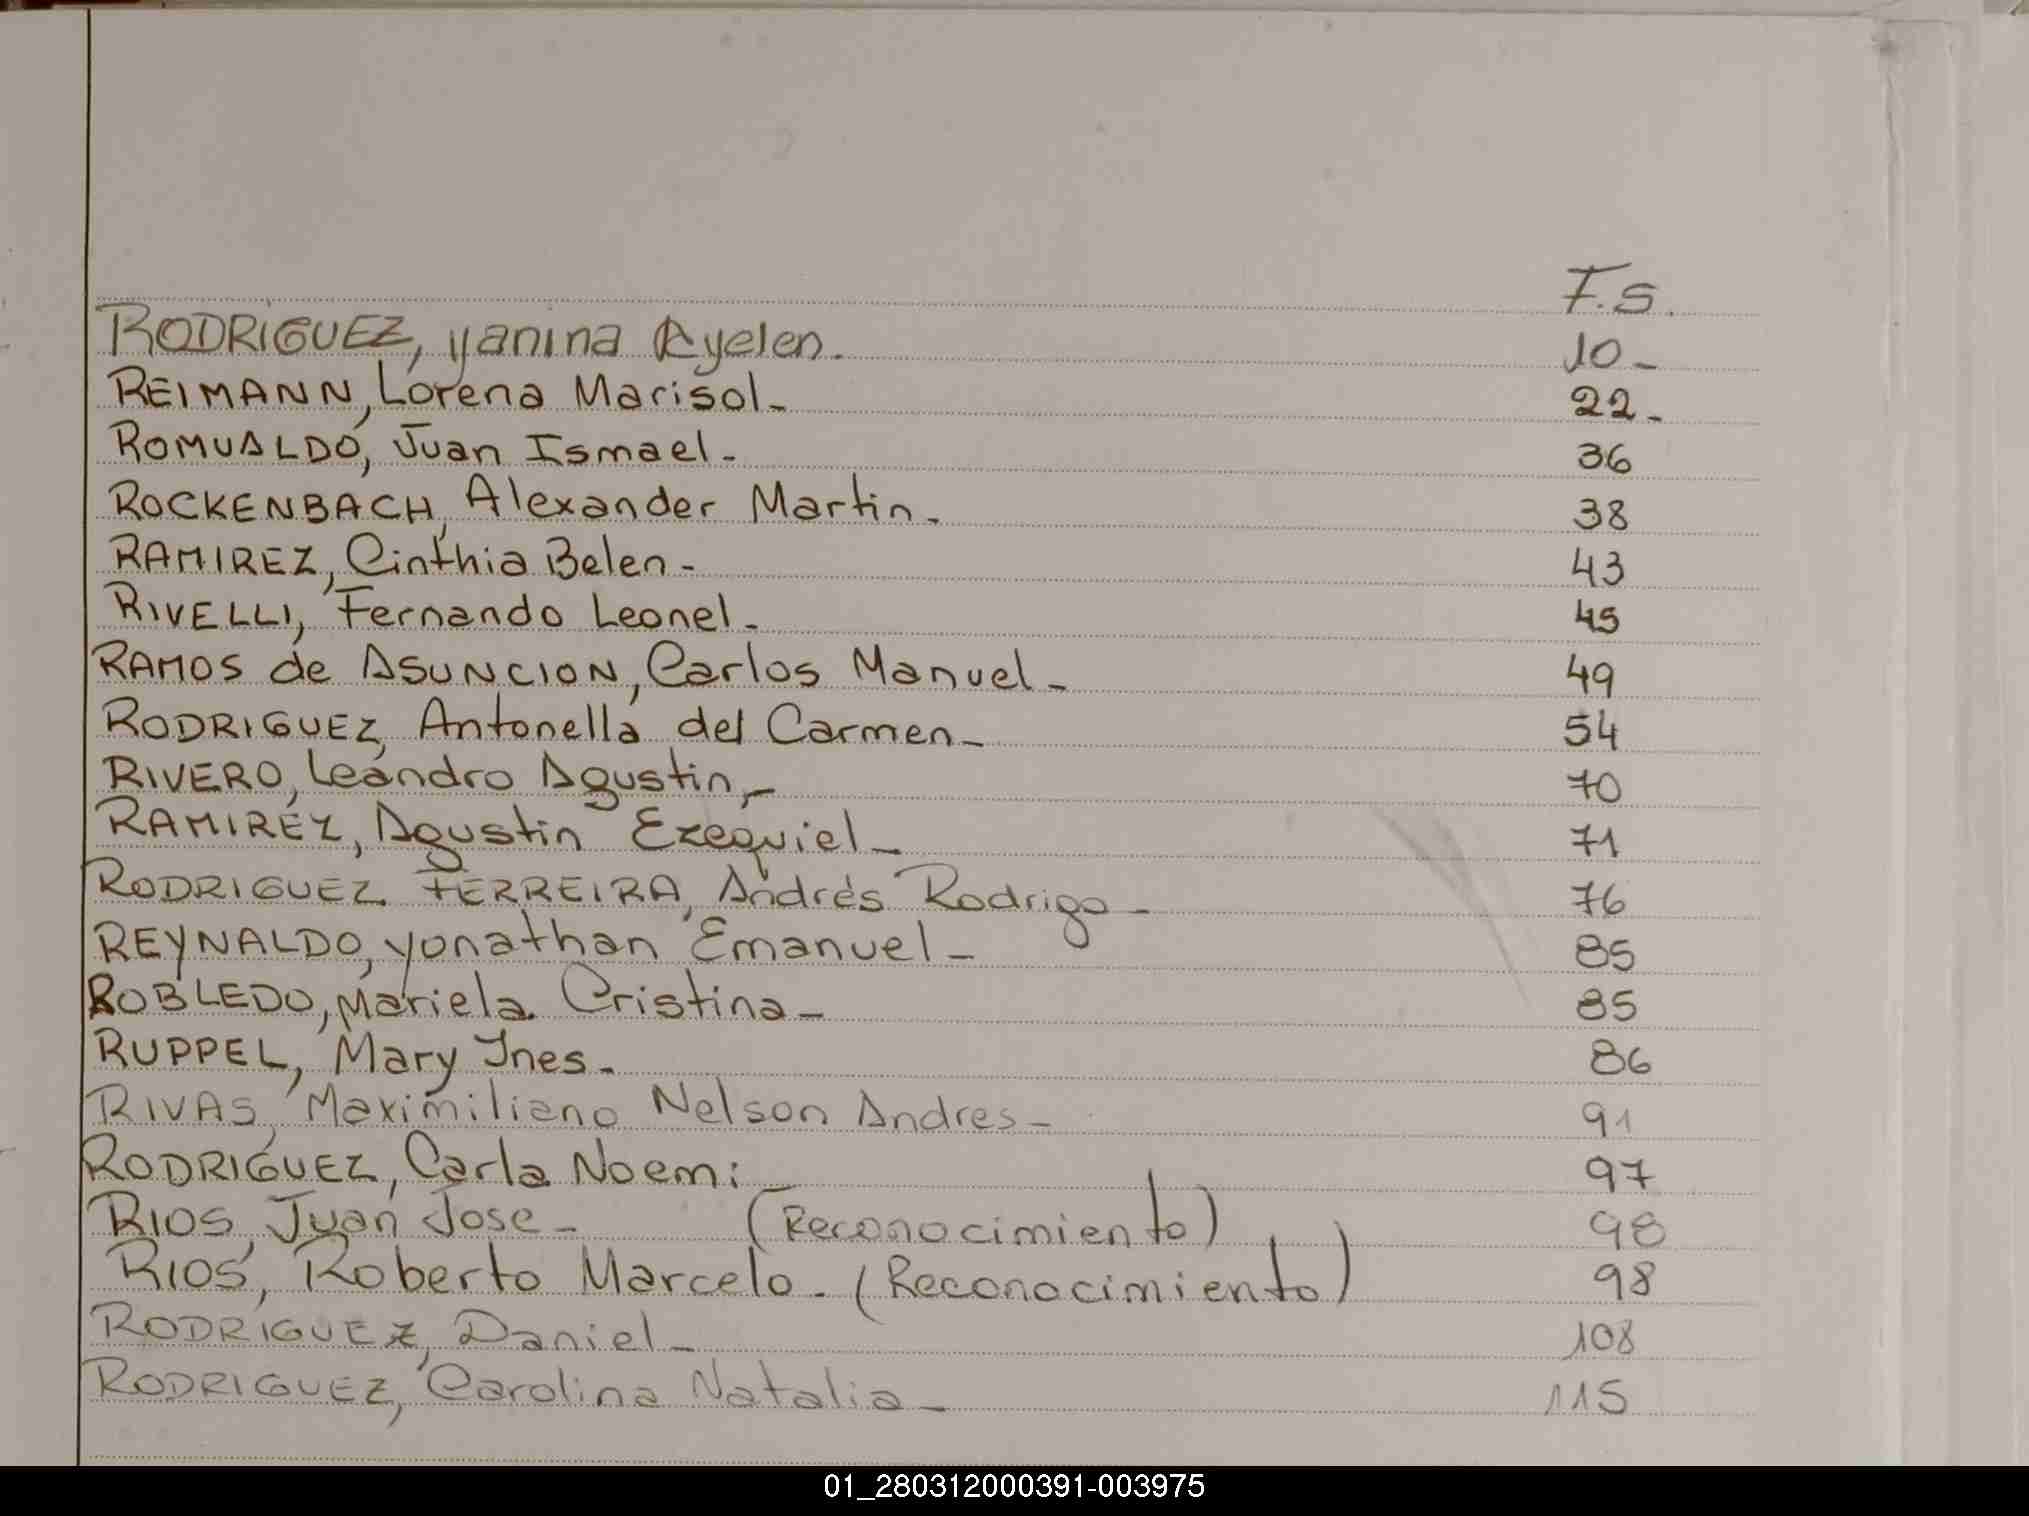 F.S.
RODRIGUEZ, yanina Ayelen. 10-
REIMANN, Lorena Marisol- 22-
ROMUALDO, Juan Ismael- 36
ROCKENBACH, Alexander Martin- 38
RAMIREZ, Cinthia Belen- 43
RIVELLI, Fernando Leonel- 45
RAMOS de ASUNCION, Carlos Manuel- 49
RODRIGUEZ, Antonella del Carmen- 54
RIVERO, Leandro Agustin,- 70
RAMIREZ, Agustin Ezequiel- 71
RODRIGUEZ FERREIRA, Andrés Rodrigo- 76
REYNALDO, yonathan Emanuel- 85
ROBLEDO, Mariela Cristina- 85
RUPPEL, Mary Ines- 86
RIVAS, Maximiliano Nelson Andres- 91
RODRIGUEZ, Carla Noemi 97
RIOS, Juan Jose- (Reconocimiento) 98
RIOS, Roberto Marcelo- (Reconocimiento) 98
RODRIGUEZ, Daniel- 108
RODRIGUEZ, Carolina Natalia- 115
01_280312000391-003975